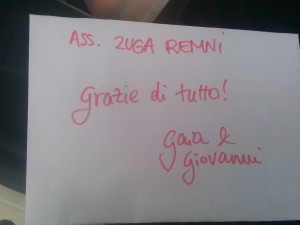 ASS. ZUGA REMNI
grazie di tutto!
gaia &
giovanni